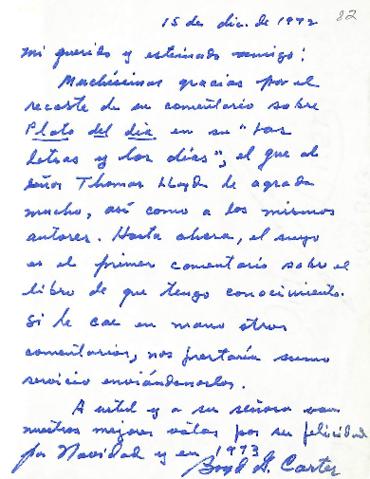 15 de dic. de 1972 82
Mi querido y estimado amigo:
Muchísimas gracias por el
recorte de su comentario sobre
Plato del día en su "Las
letras y los días", el que al
señor Thomas Lloyd le agrada
mucho, así como a los mismos
autores. Hasta ahora, el suyo
es el primer comentario sobre el
libro de que tengo conocimiento.
Si le cae en mano otros
comentarios, nos prestaría sumo
servicio enviándonoslos.
A usted y a su señora van
nuestros mejores votos por su felicidad
por Navidad y en 1973
Boyd G. Carter